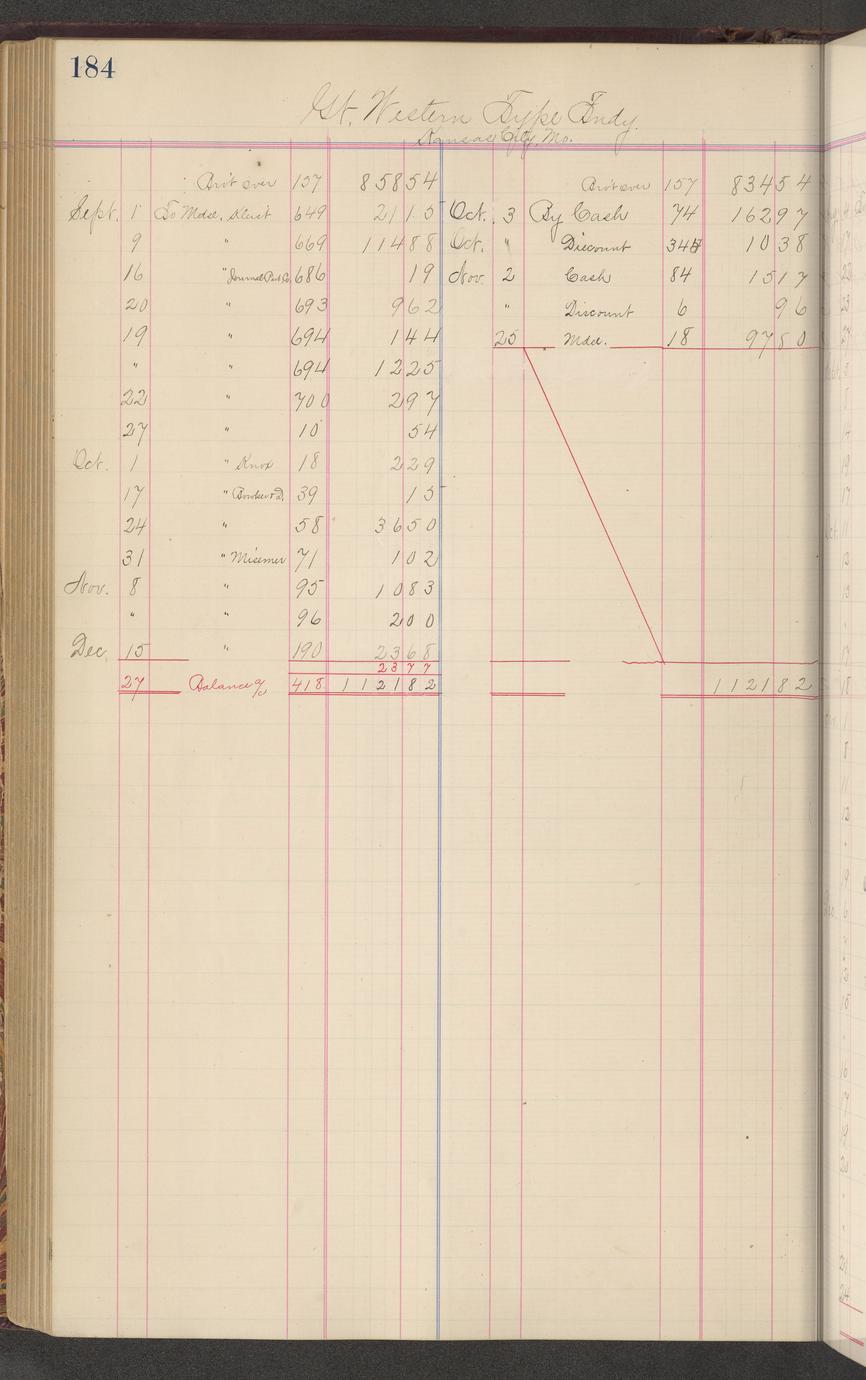 184
Gt. Western Type Fndy.
Kansas City, Mo.
Bro't over 157 858 54
Sept. 1 To Mdse. 649 21 15
9 " 669 114 88
16 " 686 19
20 " 693 9 62
19 " 694 1 44
" " 694 12 25
22 " 700 2 97
27 " 10 54
Oct. 1 " Knox 18 2 29
17 " 39 15
24 " 58 36 50
31 " Misemer 71 1 02
Nov. 8 " 95 10 83
" " 96 2 00
Dec. 15 " 190 23 68
23 77
27 Balance a/c 418 1121 82
Bro't over 157 834 54
Oct. 3 By Cash 74 162 97
Oct. " Discount 10 38
Nov. 2 Cash 84 15 17
" Discount 6 96
25 Mdse. 18 97 80
1121 82